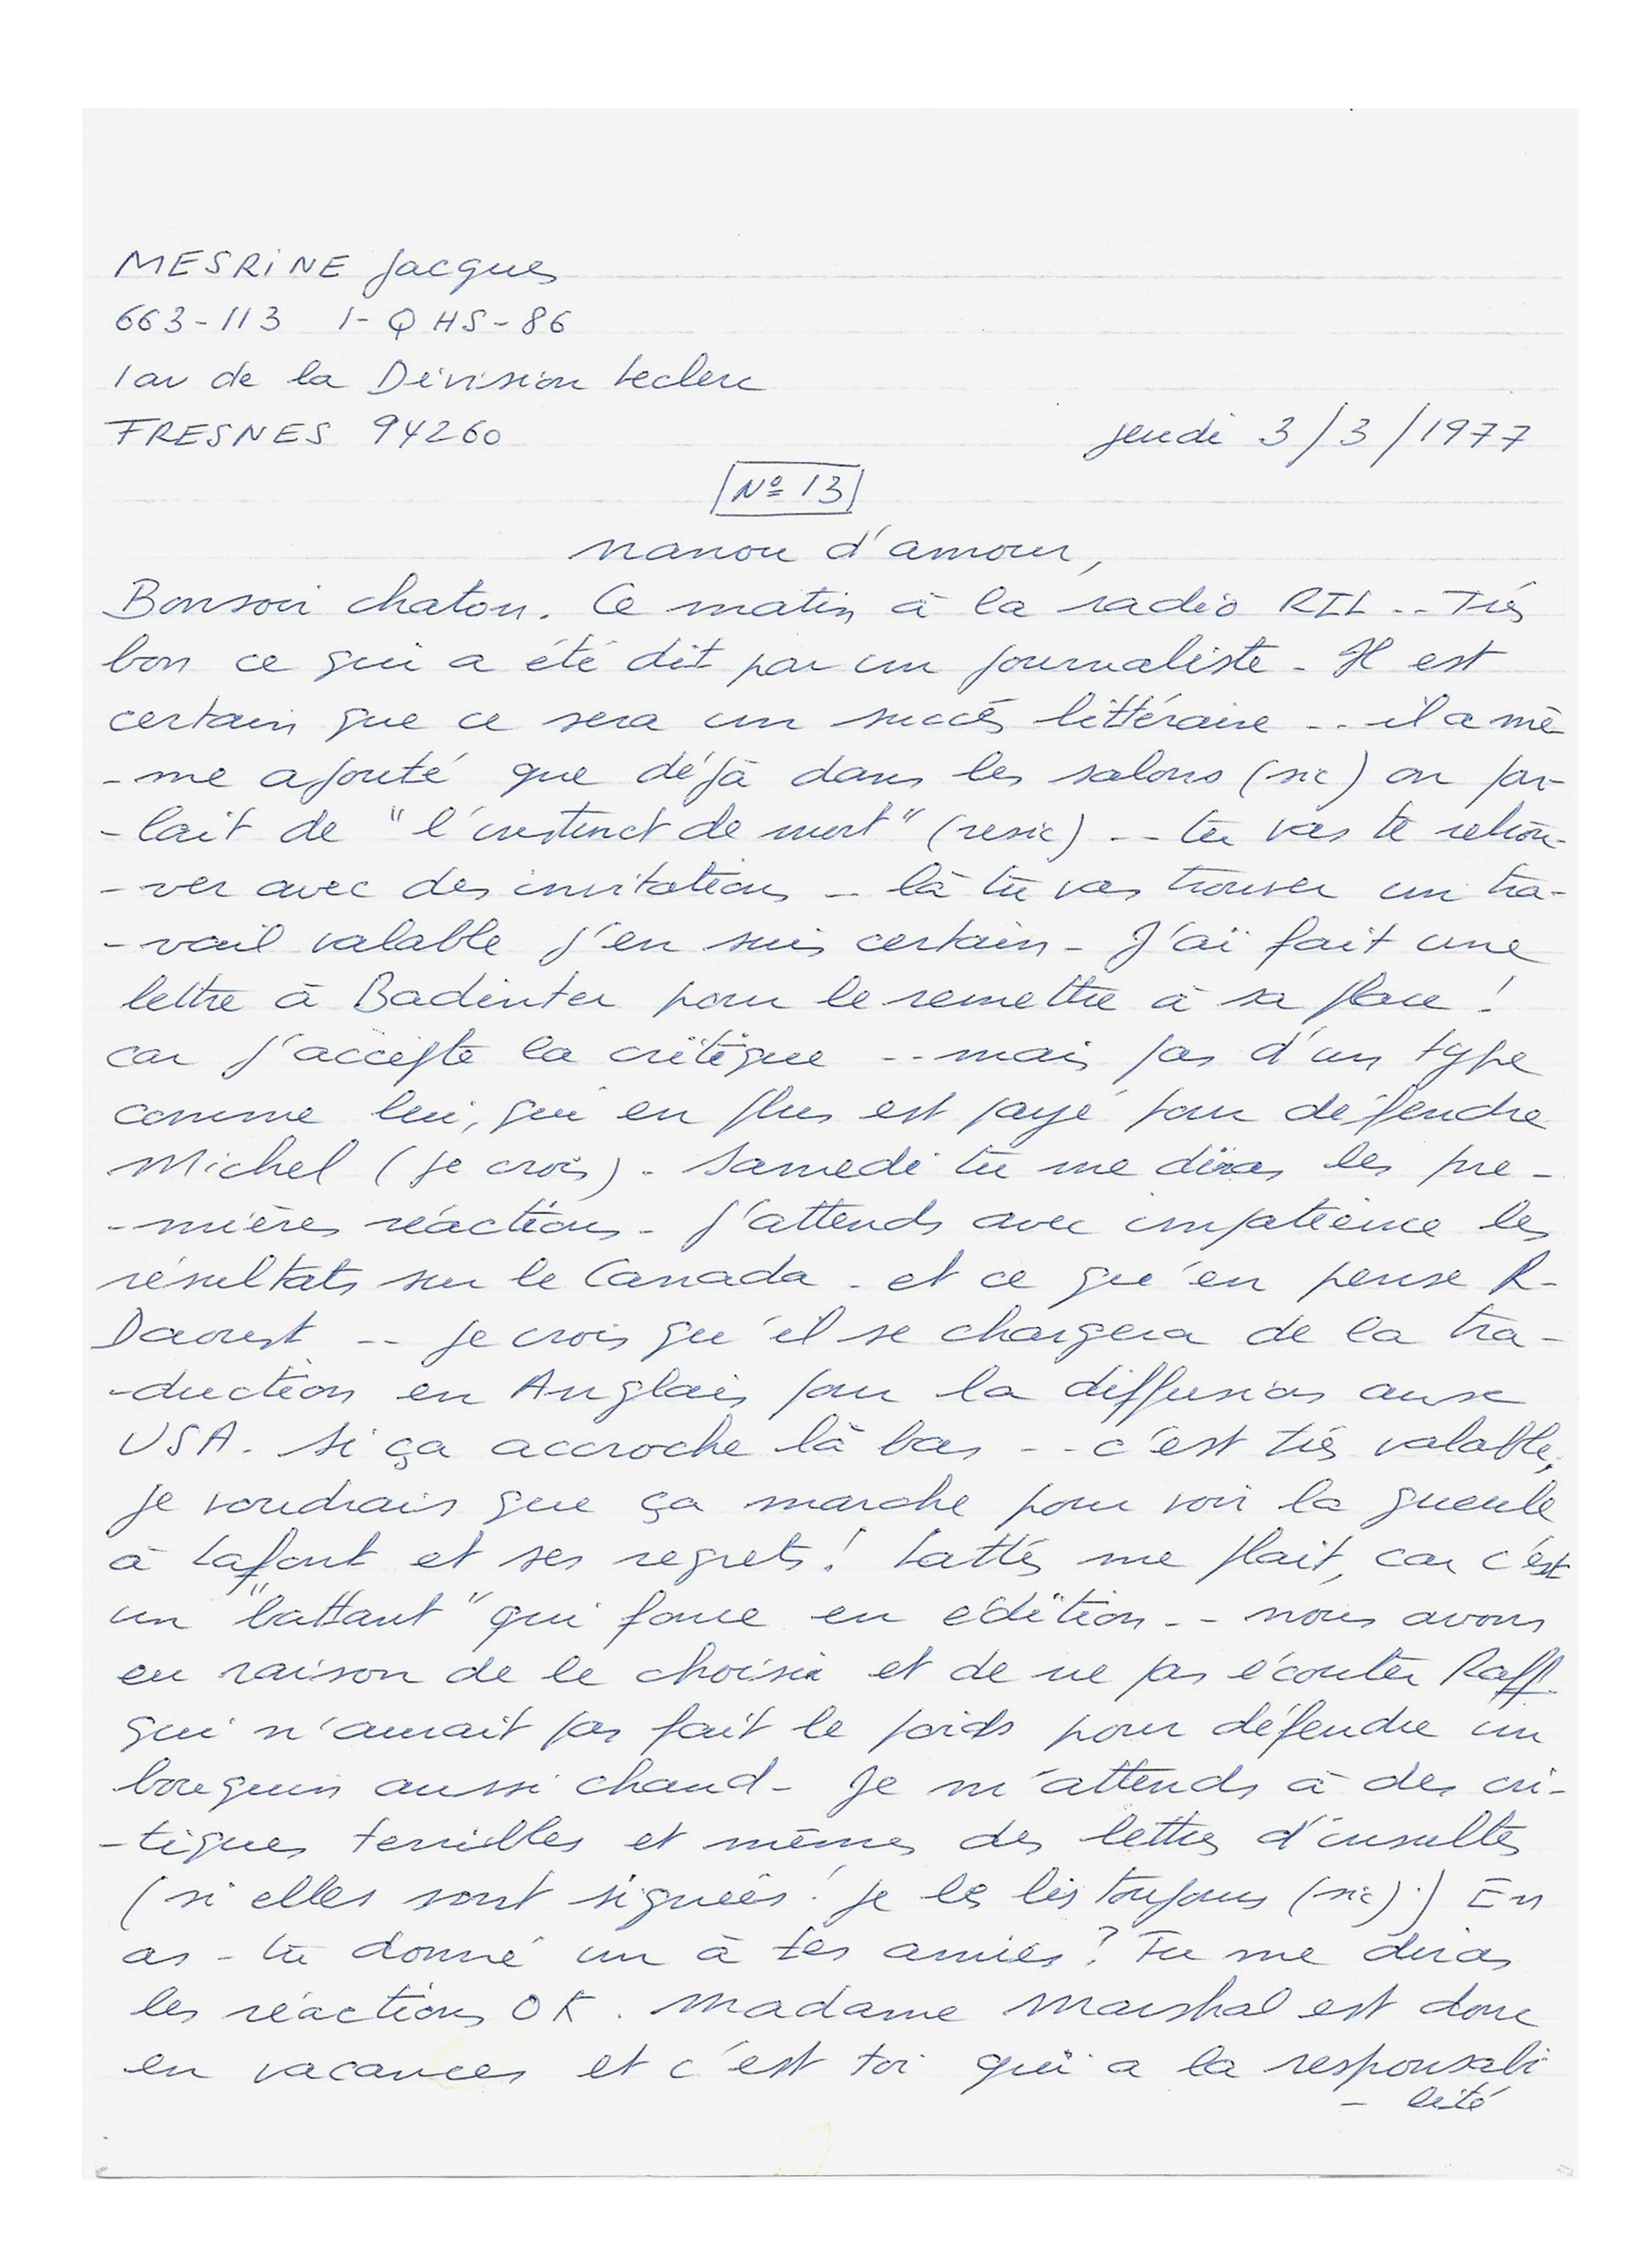 MESRINE Jacques
663-113 1-QHS-86
1 av de la Division Leclerc
FRESNES 94260
jeudi 3/3/1977
Nº 13
nanou d'amour,
Bonsoir chaton. Ce matin à la radio RTL -- Très
bon ce qui a été dit par un journaliste - Il est
certain que ce sera un succès littéraire -- il a mê
- me ajouté que déjà dans les salons (sic) on par-
- lait de "l'instinct de mort" (resic) -- tu vas te retrou-
- ver avec des invitations - là tu vas trouver un tra-
- vail valable j'en suis certain - J'ai fait une
lettre à Badinter pour le remettre à sa place !
car j'accepte la critique -- mais pas d'un type
comme lui, qui en plus est payé pour défendre
Michel (je crois). Samedi tu me diras les pre-
- mières réactions - J'attends avec impatience les
résultats sur le Canada - et ce qu'en pense R-
Daoust -- je crois qu'il se chargera de la tra-
-duction en Anglais pour la diffusion aux
USA. Si ça accroche là bas -- c'est très valable,
je voudrais que ça marche pour voir la gueule
à Lafont et ses regrets ! Lattès me plait, car c'est
un "battant" qui fonce en édition -- nous avons
eu raison de le choisir et de ne pas écouter Raff
qui n'aurait pas fait le poids pour défendre un
bouquin aussi chaud - Je m'attends à des cri-
-tiques terribles et mêmes des lettres d'insultes
(si elles sont signées ! je les lis toujours (sic).) En
as-tu donné un à tes amies ? Tu me diras
les réactions OK. Madame Marshal est donc
en vacances et c'est toi qui a la responsabi
- lité